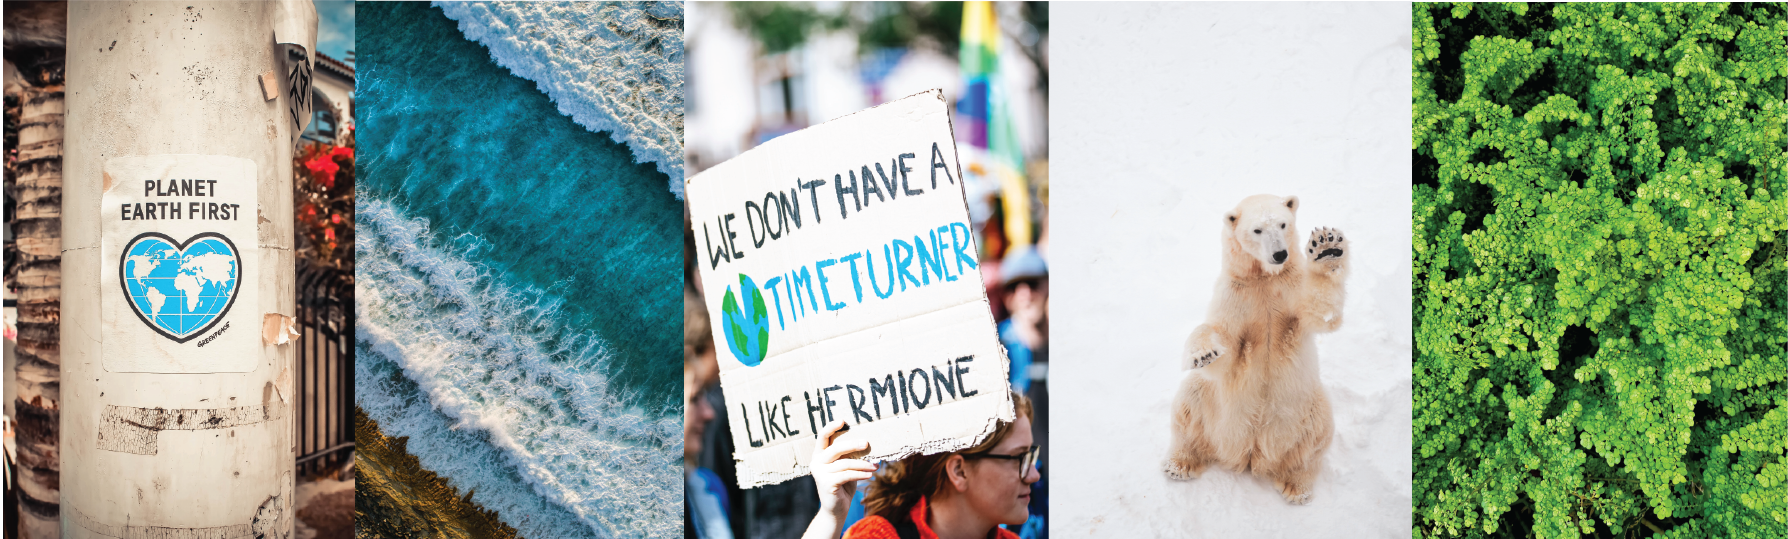 PLANET
EARTH FIRST
GREENPEACE
WE DON'T HAVE A
TIMETURNER
LIKE HERMIONE